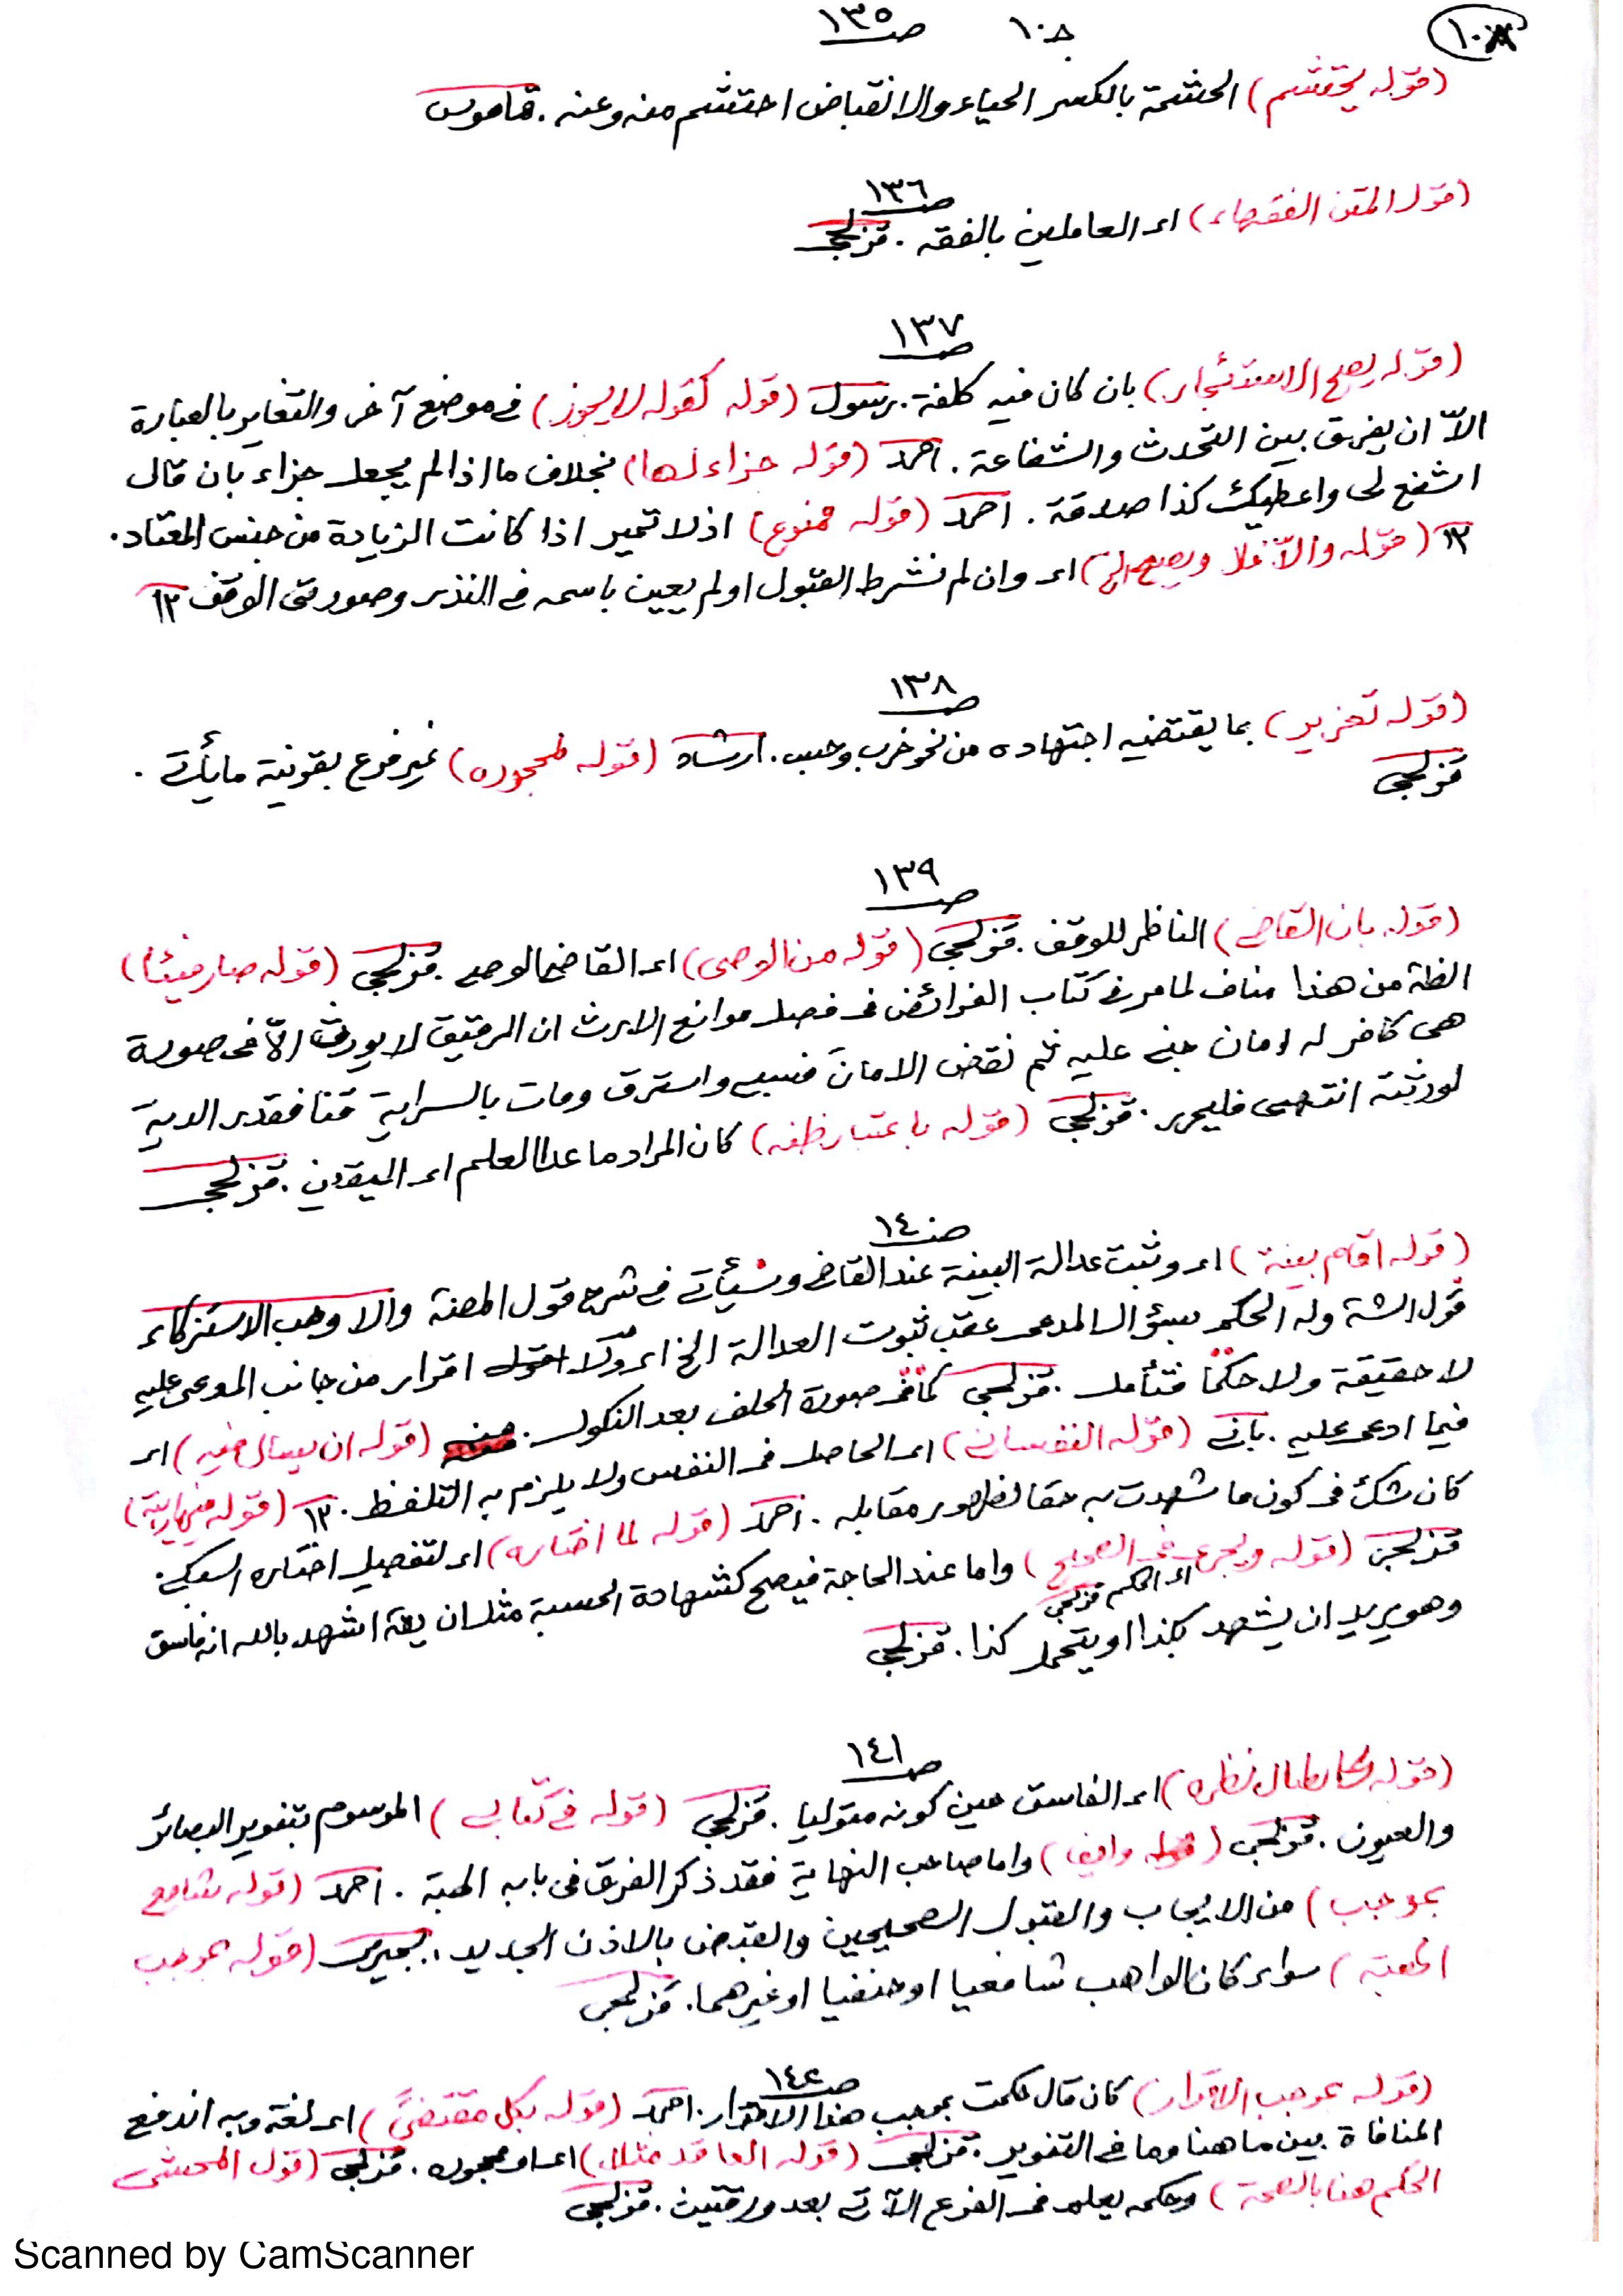 ١٠٨ ١٠٨ صـ ١٣٥
(قوله يحتشم) الحشمة بالكسر الحياء والانقباض احتشم منه وعنه . قاموس
صـ ١٣٦
(قول المتن الفقهاء) اى العاملين بالفقه . قزلجى
صـ ١٣٧
(قوله يصح الاستئجار) بان كان فيه كلفة . رسول (قوله كقوله لا يجوز) فى موضع آخر والتغاير بالعبارة
الاّ ان يفرق بين التحدث والشفاعة . احمد (قوله جزاء لها) بخلاف ما اذا لم يجعل جزاء بان قال
اشفع لى واعطيك كذا صدقة . احمد (قوله ممنوع) اذ لا تميز اذا كانت الزيادة من جنس المعتاد .
١٢ (قوله والاّ فلا ويصح الخ) اى وان لم نشرط القبول او لم يعين باسمه فى النذر وصورتى الوقف ١٢
صـ ١٣٨
(قوله تعزير) بما يقتضيه اجتهاده من نحو ضرب وحبس . ارشاد (قوله لمحجوره) غير فرع بقرينة ما يأتى .
قزلجى
صـ ١٣٩
(قوله بان القاضى) الناظر للوقف . قزلجى (قوله من الوصى) اى القاضى الوصى . قزلجى (قوله صار فيئا)
الظـ من هذا مناف لما مر فى كتاب الفرائض فى فصل موانع الارث ان الرقيق لا يورث الاّ فى صورة
هى كافر له امان جنى عليه ثم نقض الامان فسبى واسترق ومات بالسراية قنا فقدر الدية
لورثته انتهى فليحرر . قزلجى (قوله باعتبار ظنه) كان المراد ما عدا العلم اى اليقين . قزلجى
صـ ١٤٠
(قوله اقام بينة) اى وثبت عدالة البينة عند القاضى وسيأتى فى شرح قول المصنـ والا وجب الاستزكاء
قول الشـ وله الحكم بسؤال المدعى عقب ثبوت العدالة الخ اى ولا اقرار من جانب المدعى عليه
لا حقيقة ولا حكمًا فتأمل . قزلجى كما فى صورة الحلف بعد النكول . منه (قوله ان يسأل فيه) اى
فيما ادعى عليه . بانى (قوله النفسانى) اى الحاصل فى النفس ولا يلزم به التلفظ . ١٢ (قوله فيها ريبة)
كان شك فى كون ما شهدت به حقا لظهور مقابله . احمد (قوله لما اختاره) اى لتفصيل اختاره السبكى .
قزلجى (قوله ويجرى فى الصحيح) واما عند الحاجة فيصح كشهادة الحسبة مثل ان يقـ اشهد بالله انه فاسق
اى الحكم قزلجى
وهو يريد ان يشهد بكذا او يتحمل كذا . قزلجى
صـ ١٤١
(قوله نظره) اى الفاسق حين كونه متوليا . قزلجى (قوله فى كتابى) الموسوم بتنوير البصائر
والعيون . قزلجى (قوله وايضا) واما صاحب النهاية فقد ذكر الفرق فى بابه الهبة . احمد (قوله شافعى
بموجب) من الايجاب والقبول الصحيحين والقبض بالاذن الجديد . بجيرمى (قوله بموجب
الهبة) سواء كان الواهب شافعيا او حنفيا او غيرهما . قزلجى
صـ ١٤٢
(قوله بموجب الاقرار) كان قال حكمت بموجب هذا الاقرار . احمد (قوله بكل مقتضىً) اى لغة وبه اندفع
المنافاة بين ما هنا وما فى التنوير . قزلجى (قوله العاقد مثلا) اى او محجوره . قزلجى (قول المحشى
الحكم هنا بالصحة) وحكمه يعلم فى الفرع الآتى بعد ورقتين . قزلجى
Scanned by CamScanner